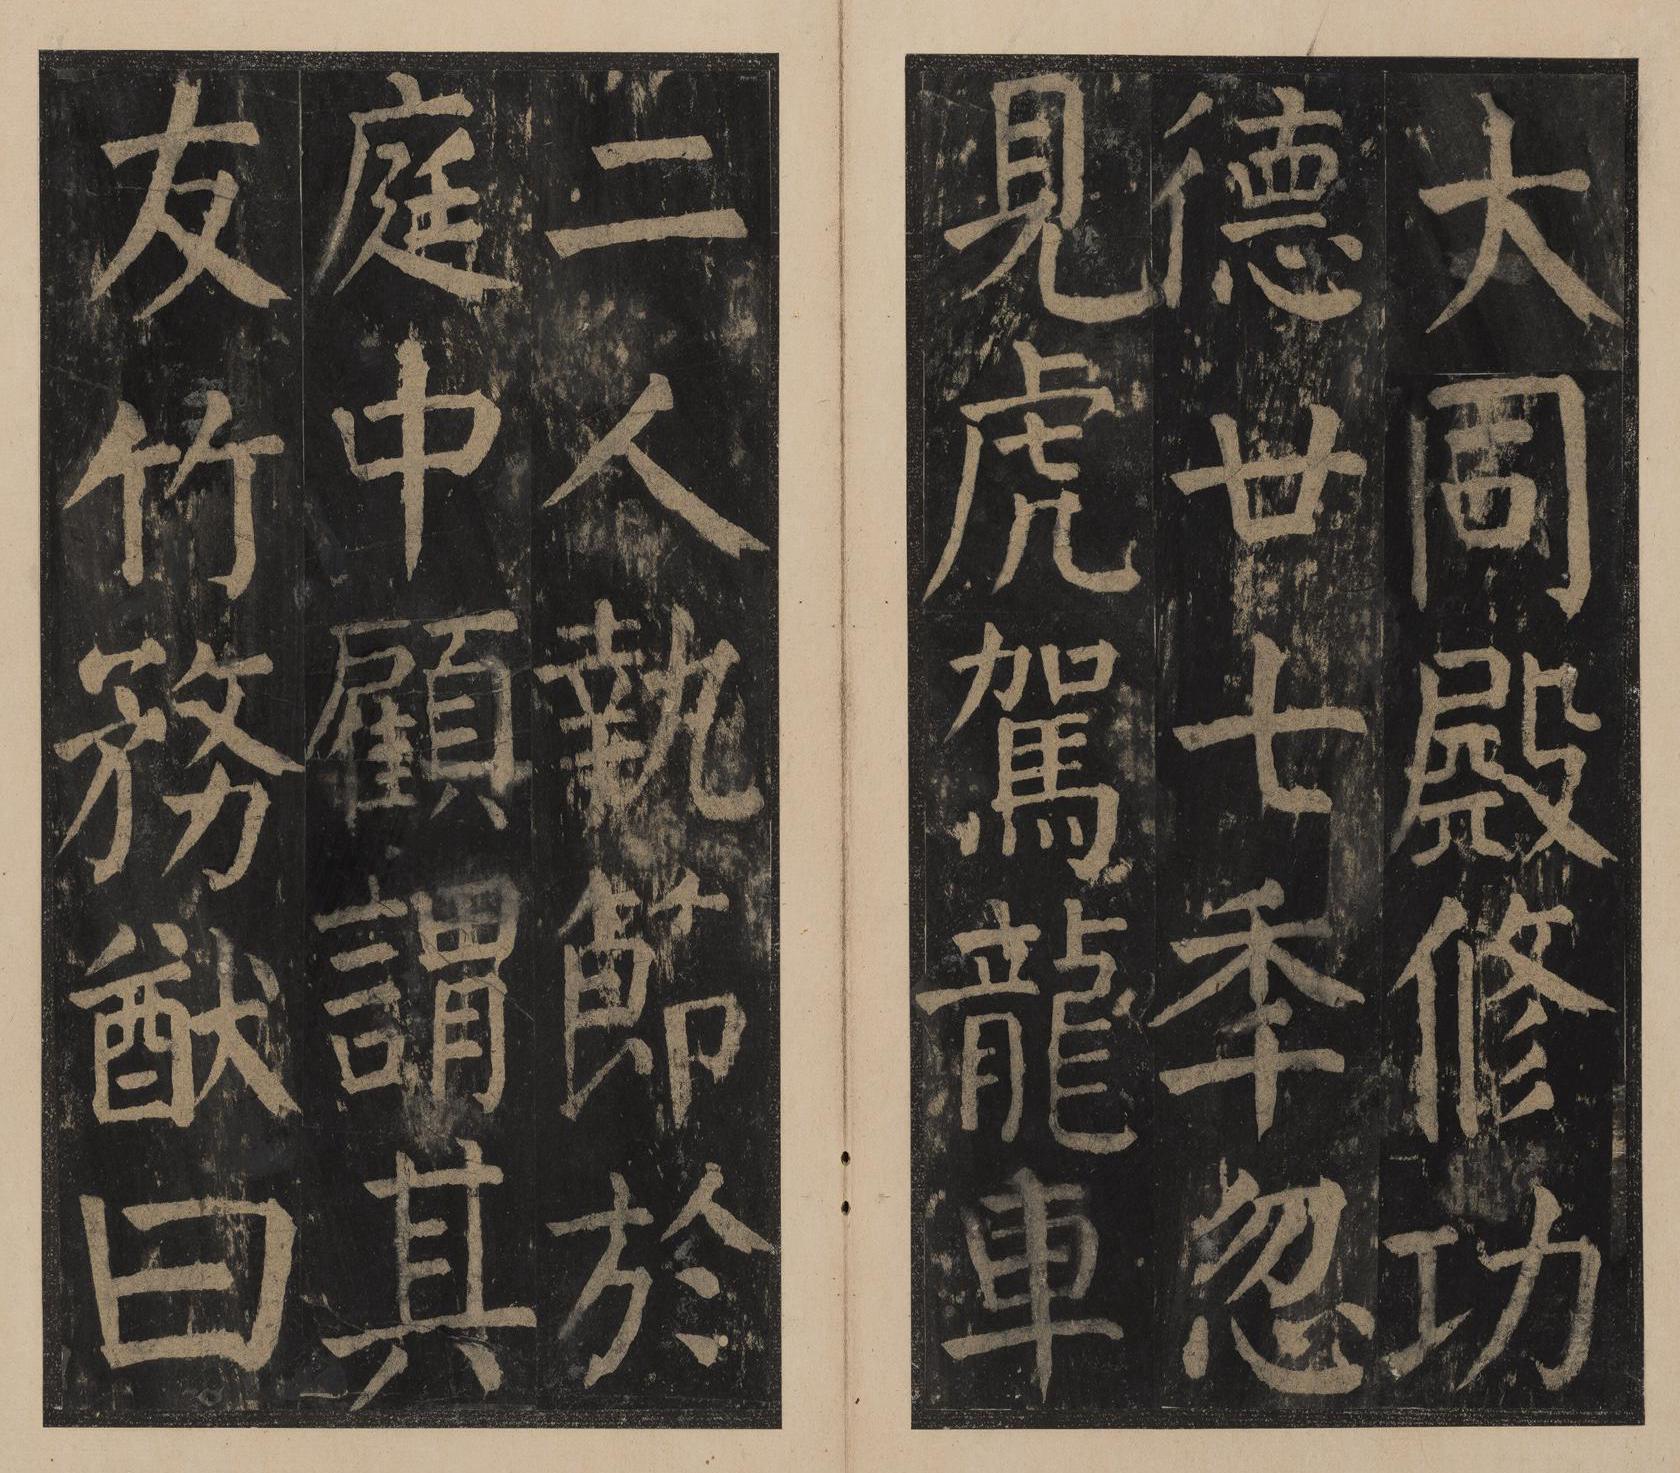 大周殿修功
德廿七季忽
見虎駕龍車
二人執節於
庭中顧謂其
友竹務猷曰